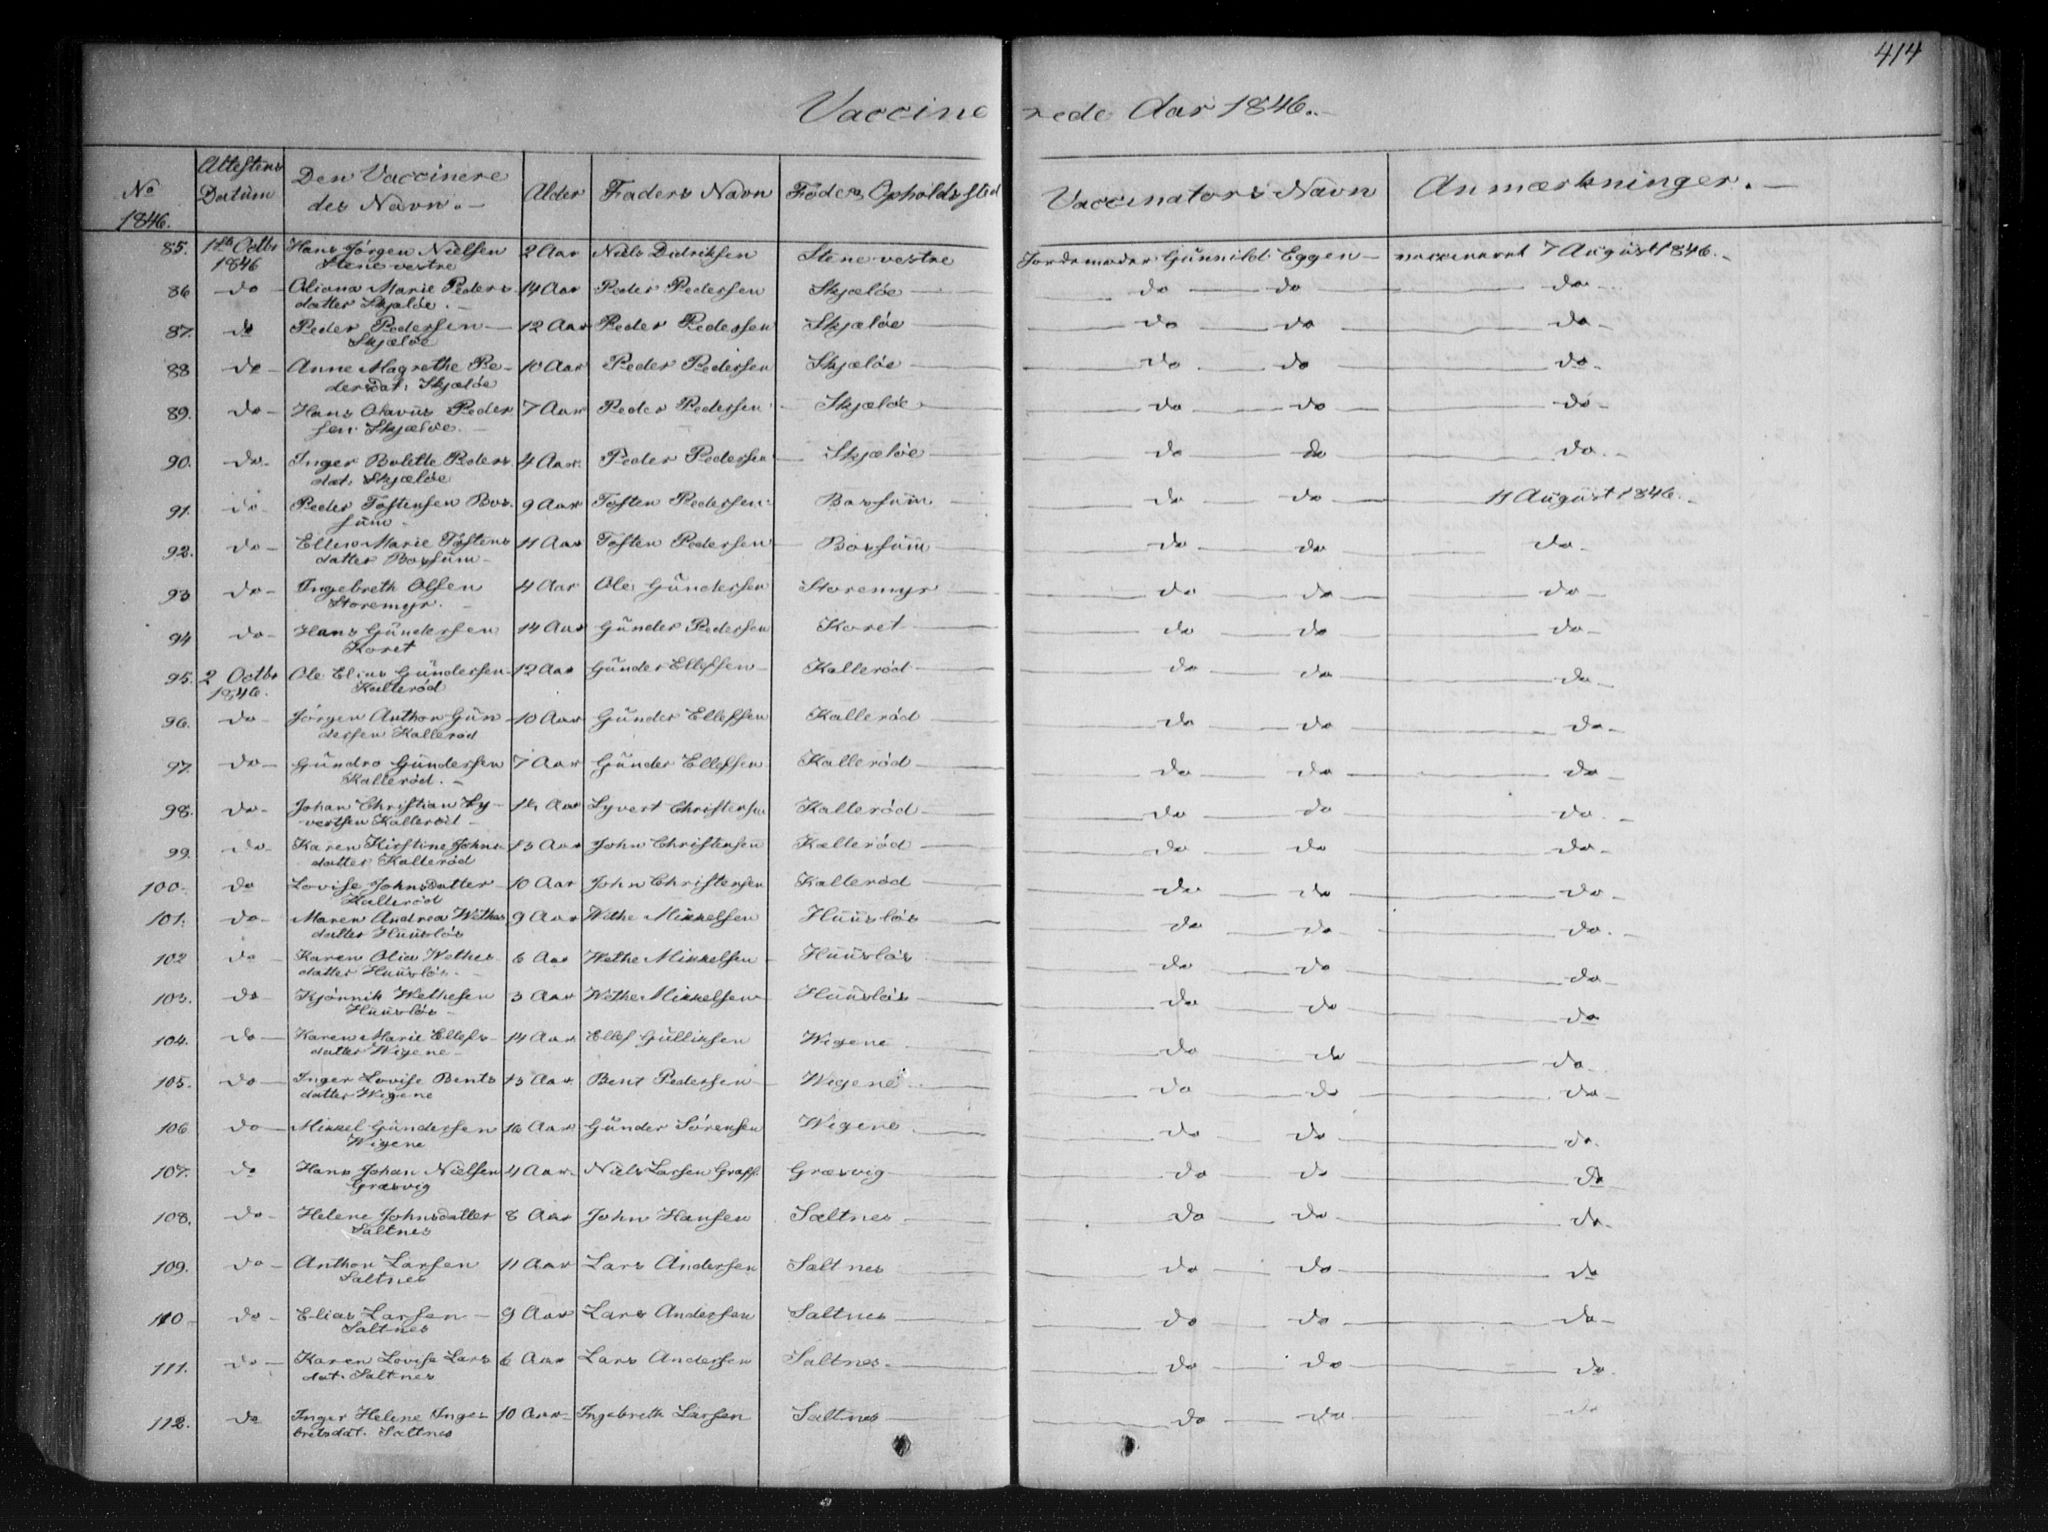 414
Vaccinerede Aar 1846.
No 1846. Attestens Datum Den Vaccineredes Navn. Alder Faders Navn Føde & Opholdssted Vaccinators Navn Anmærkninger.
85. 1ste Octbr 1846 Hans Jörgen Nielsen 2 Aar Niels Didriksen Stene vestre Jordemoder Gunnild Eggen vaccineret 7 August 1846.
Stene vestre
86 do Peders 14 Aar Peder Pedersen Skjælöe do do do
datter Skjælöe.
87. do Peder Pedersen 12 Aar Peder Pedersen Skjælöe do do do
Skjælöe
88 do Anne Magrethe Pe- 10 Aar Peder Pedersen Skjælöe do do do
dersdat. Skjælöe
89. do Hans Olavus Peder 7 Aar Peder Pedersen Skjælöe do do do
sen Skjælöe.
90. do Inger Bolette Peders 4 Aar Peder Pedersen Skjælöe do do do
dat. Skjælöe
91. do Peder Tostensen Bos- 9 Aar Tosten Pedersen Bossum do do 11 August 1846.
sum
92. do Ellen Marie Tostens 11 Aar Tosten Pedersen Bossum do do do
datter Bossum
93 do Ingebreth Olsen 4 Aar Ole Gundersen Storemyr do do do
Storemyr.
94 do Hans Gundersen 14 Aar Gunder Pedersen Koret do do do
Koret
95. 2 Octbr 1846. Ole Elias Gundersen 12 Aar Gunder Ellefsen Kalleröd do do do
Kalleröd
96. do Jörgen Anthon Gun 10 Aar Gunder Ellefsen Kalleröd do do do
dersen Kalleröd
97. do Gundro Gundersen 7 Aar Gunder Ellefsen Kalleröd do do do
Kalleröd.
98. do Johan Christian Sy- Aar Syvert Christensen Kalleröd do do do
vertsen Kalleröd
99. do Karen Kirstine Johns 13 Aar John Christensen Kalleröd do do do
datter Kalleröd
100. do Lovise Johnsdatter 10 Aar John Christensen Kalleröd do do do
Kalleröd
101. do Maren Andrea Wethes 9 Aar Wethe Mikkelsen Huuslös do do do
datter Huuslös
102 do Karen Olia Wethes 6 Aar Wethe Mikkelsen Huuslös do do do
datter Huuslös.
103. do Kjönnik Wethesen 3 Aar Wethe Mikkelsen Huuslös do do do
Huuslös
104. do Karen Marie Ellefs- 14 Aar Ellef Gulliksen Wigene do do do
datter Wigene
105. do Inger Lovise Bents 13 Aar Bent Pedersen Wigene do do do
datter Wigene
106 do Mikkel Gundersen 16 Aar Gunder Sörensen Wigene do do do
Wigene
107. do Hans Johan Nielsen 4 Aar Niels Larsen Græsvig do do do
Græsvig
108. do Helene Johnsdatter 8 Aar John Hansen Saltnes do do do
Saltnes
109. do Anthon Larsen 11 Aar Lars Andersen Saltnes do do do
Saltnes
110 do Elias Larsen 9 Aar Lars Andersen Saltnes do do do
Saltnes
111. do Karen Lovise Lars 6 Aar Lars Andersen Saltnes do do do
dat. Saltnes
112. do Inger Helene Inge- 10 Aar Ingebreth Larsen Saltnes do do do
bretsdat. Saltnes